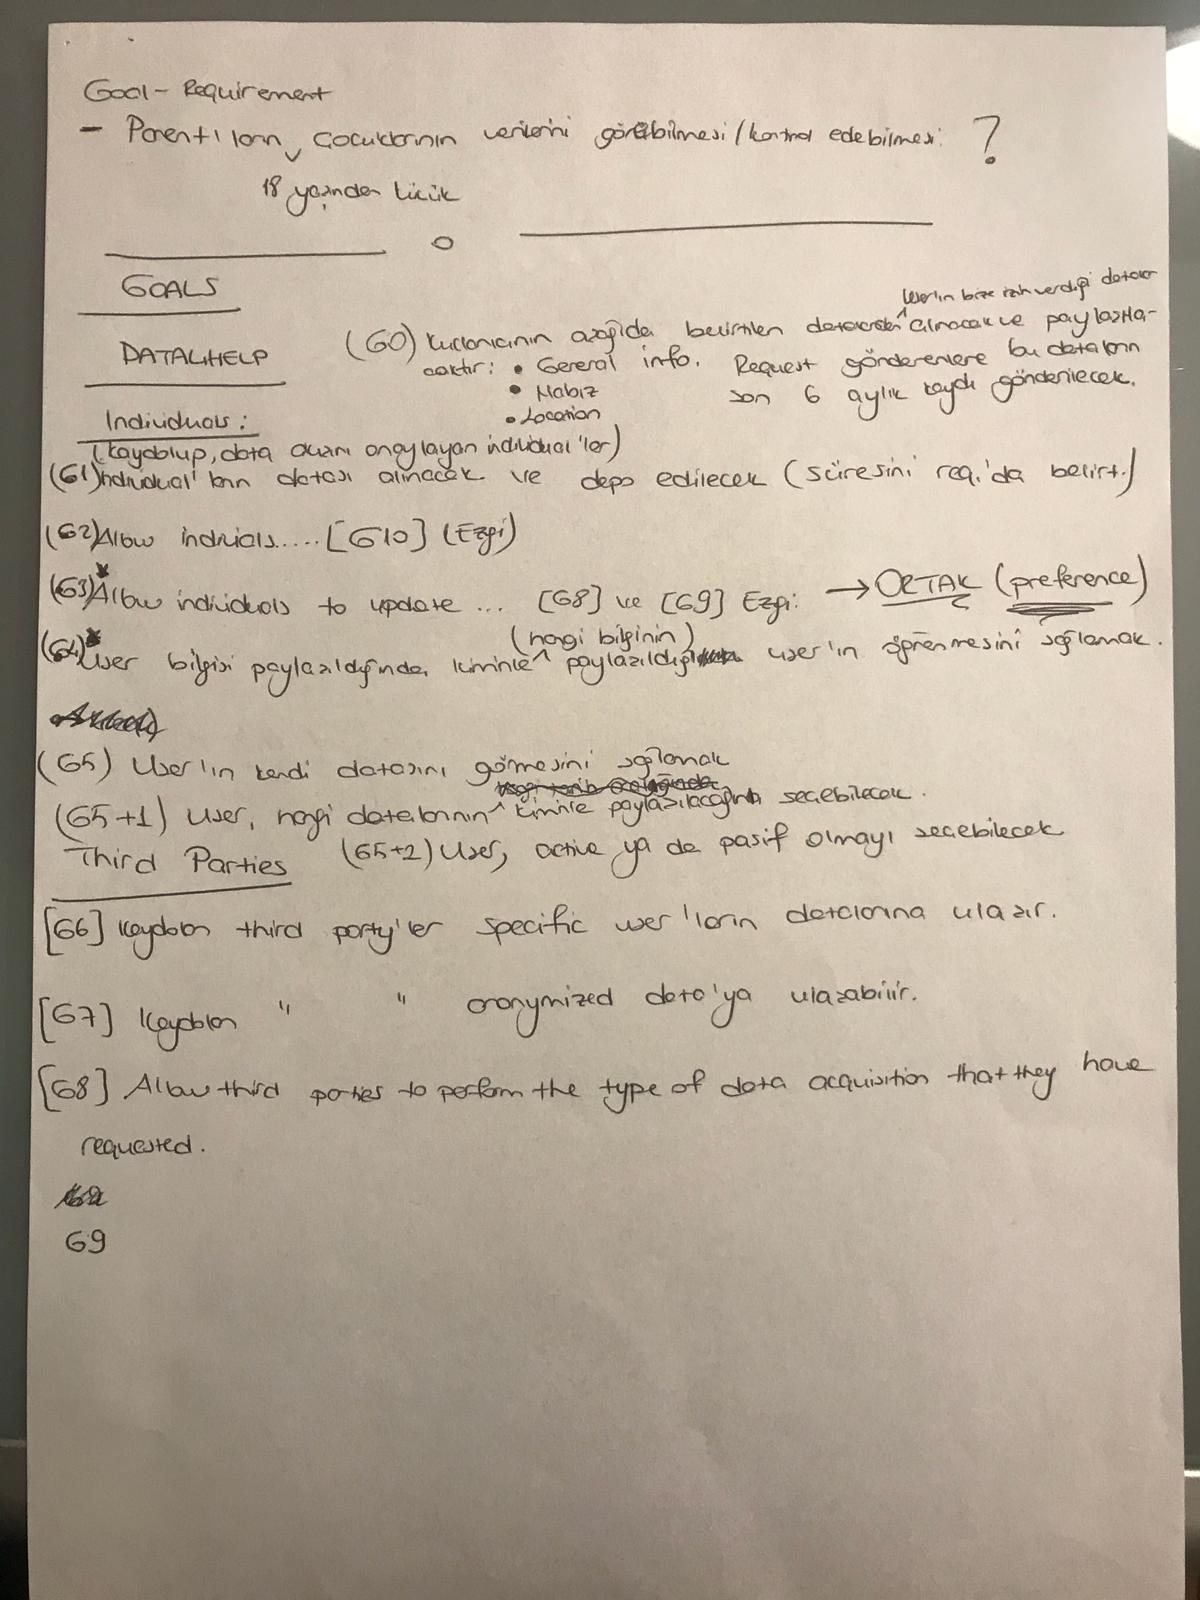 Goal - Requirement
- Parent'ların çocuklarının verilerini görebilmesi/kontrol edebilmesi ?
18 yaşından küçük
GOALS
User'ın bize izin verdiği datalar
DATA4HELP
(G0) Kullanıcının aşağıda belirtilen datalardan alınacak ve paylaşıla-
caktır: • General info. Request gönderenlere bu dataların
• Nabız son 6 aylık kaydı gönderilecek.
• Location
Individuals:
(kaydolup, data onaylayan individual'ler)
(G1) Individual'ların datası alınacak ve depo edilecek (süresini req.'da belirt.)
(G2) Allow indvials..... [G10] (Ezgi)
(G3) Allow individuals to update ... [G8] ve [G9] Ezgi → ORTAK (preference)
(hangi bilginin)
(G4) User bilgisi paylaşıldığında, kiminle paylaşıldığı user'ın öğrenmesini sağlamak.
(G5) User'ın kendi datasını görmesini sağlamak
(G5+1) User, hangi datalarının kiminle paylaşılacağını seçebilecek.
Third Parties (G5+2) User, active ya da pasif olmayı seçebilecek
[G6] Kaydolan third party'ler specific user'ların datalarına ulaşır.
[G7] Kaydolan " " anonymized data'ya ulaşabilir.
[G8] Allow third parties to perform the type of data acquisition that they have
requested.
G9